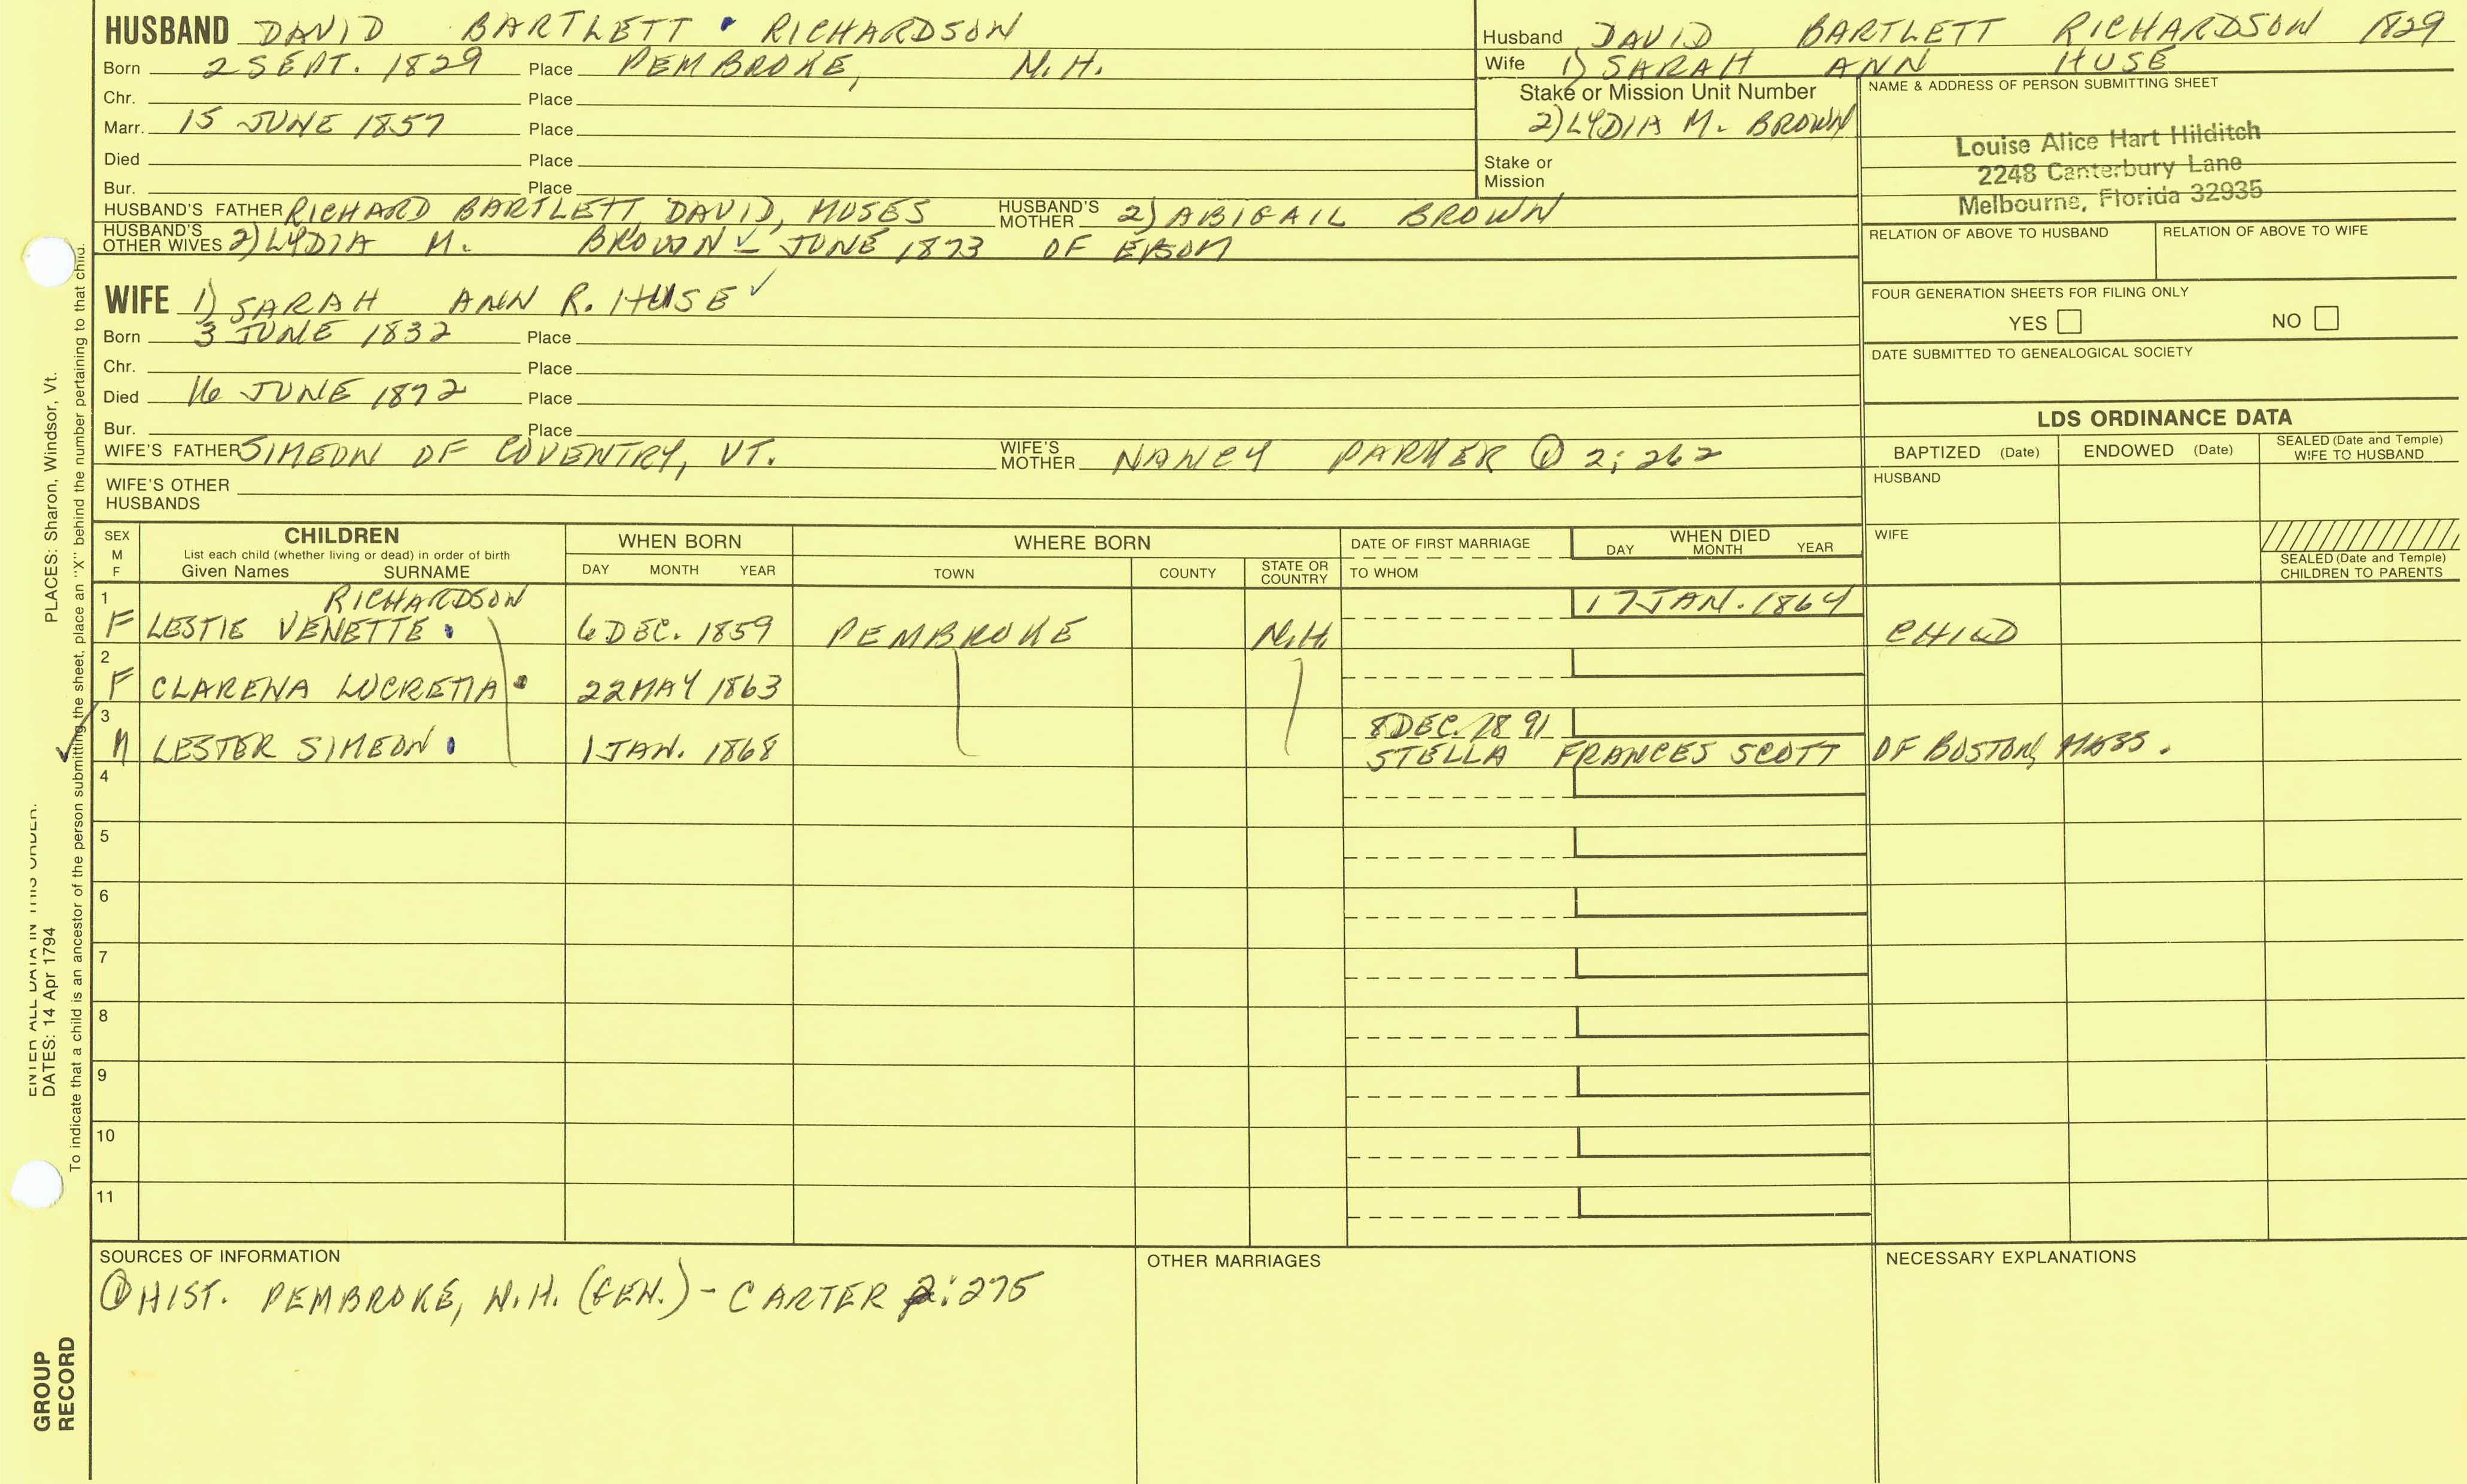 HUSBAND DAVID BARTLETT RICHARDSON
Born 2 SEPT. 1829 Place PEMBROKE, N.H.
Chr. Place
Marr. 15 JUNE 1857 Place
Died Place
Bur. Place
HUSBAND'S FATHER RICHARD BARTLETT, DAVID, MOSES HUSBAND'S MOTHER 2) ABIGAIL BROWN
HUSBAND'S OTHER WIVES 2) LYDIA M. BROWN ✓ - JUNE 1873 OF EPSOM
WIFE 1) SARAH ANN R. HUSE ✓
Born 3 JUNE 1832 Place
Chr. Place
Died 16 JUNE 1872 Place
Bur. Place
WIFE'S FATHER SIMEON OF COVENTRY, VT. WIFE'S MOTHER NANCY PARKER ① 2; 262
WIFE'S OTHER HUSBANDS
Husband DAVID BARTLETT RICHARDSON 1829
Wife 1) SARAH ANN HUSE
Stake or Mission Unit Number
2) LYDIA M. BROWN
Stake or Mission
NAME & ADDRESS OF PERSON SUBMITTING SHEET
Louise Alice Hart Hilditch
2248 Canterbury Lane
Melbourne, Florida 32935
RELATION OF ABOVE TO HUSBAND RELATION OF ABOVE TO WIFE
FOUR GENERATION SHEETS FOR FILING ONLY
YES NO
DATE SUBMITTED TO GENEALOGICAL SOCIETY
LDS ORDINANCE DATA
BAPTIZED (Date) ENDOWED (Date) SEALED (Date and Temple) WIFE TO HUSBAND
HUSBAND
WIFE
SEALED (Date and Temple) CHILDREN TO PARENTS
SEX M F CHILDREN WHEN BORN WHERE BORN DATE OF FIRST MARRIAGE WHEN DIED
List each child (whether living or dead) in order of birth
Given Names SURNAME DAY MONTH YEAR TOWN COUNTY STATE OR COUNTRY TO WHOM DAY MONTH YEAR
1 RICHARDSON 17 JAN. 1864
F LESTIE VENETTE 6 DEC. 1859 PEMBROKE N.H. CHILD
2
F CLARENA LUCRETIA 22 MAY 1863
3 8 DEC. 1891
✓ M LESTER SIMEON 1 JAN. 1868 STELLA FRANCES SCOTT OF BOSTON, MASS.
4
5
6
7
8
9
10
11
SOURCES OF INFORMATION OTHER MARRIAGES NECESSARY EXPLANATIONS
① HIST. PEMBROKE, N.H. (GEN.) - CARTER 2:275
ENTER ALL DATA IN THIS ORDER:
DATES: 14 Apr 1794 PLACES: Sharon, Windsor, Vt.
To indicate that a child is an ancestor of the person submitting the sheet, place an "X" behind the number pertaining to that child.
GROUP
RECORD